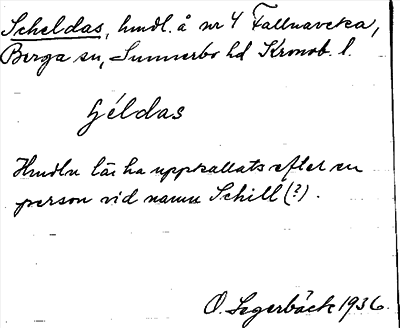 Scheldas, hmdl. å nr 4 Fallnaveka,
Berga sn, Sunnerbo hd Kronob. l.
Géldas
Hmdln lär ha uppkallats efter en
person vid namn Schill (?).
O. Segerbäck 1936.